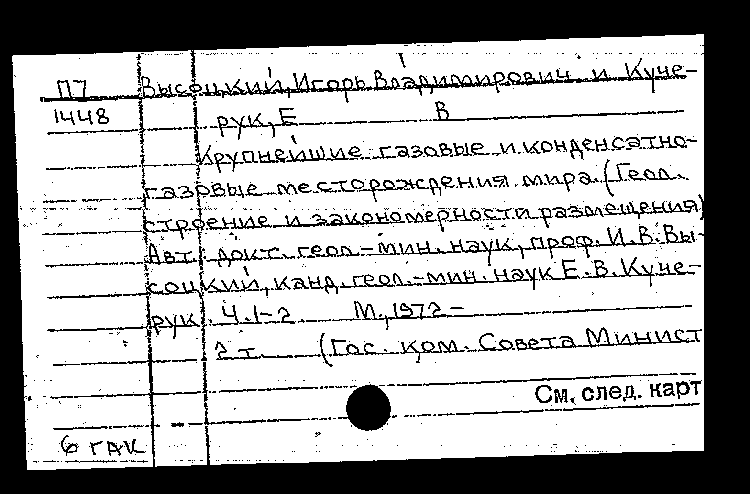 П7 Высоцкий, Игорь Владимирович и Куче-
1448 рук, Е В
Крупнейшие газовые и конденсатно-
газовые месторождения мира. (Геол.
строение и закономерности размещения)
Авт.: докт. геол.-мин. наук, проф. И.В.Вы-
соцкий, канд. геол.-мин. наук Е.В.Куче-
рук. Ч.1-2 М., 1972-
2 т. (Гос. ком. Совета Минист
См. след. карт
6 ГАК